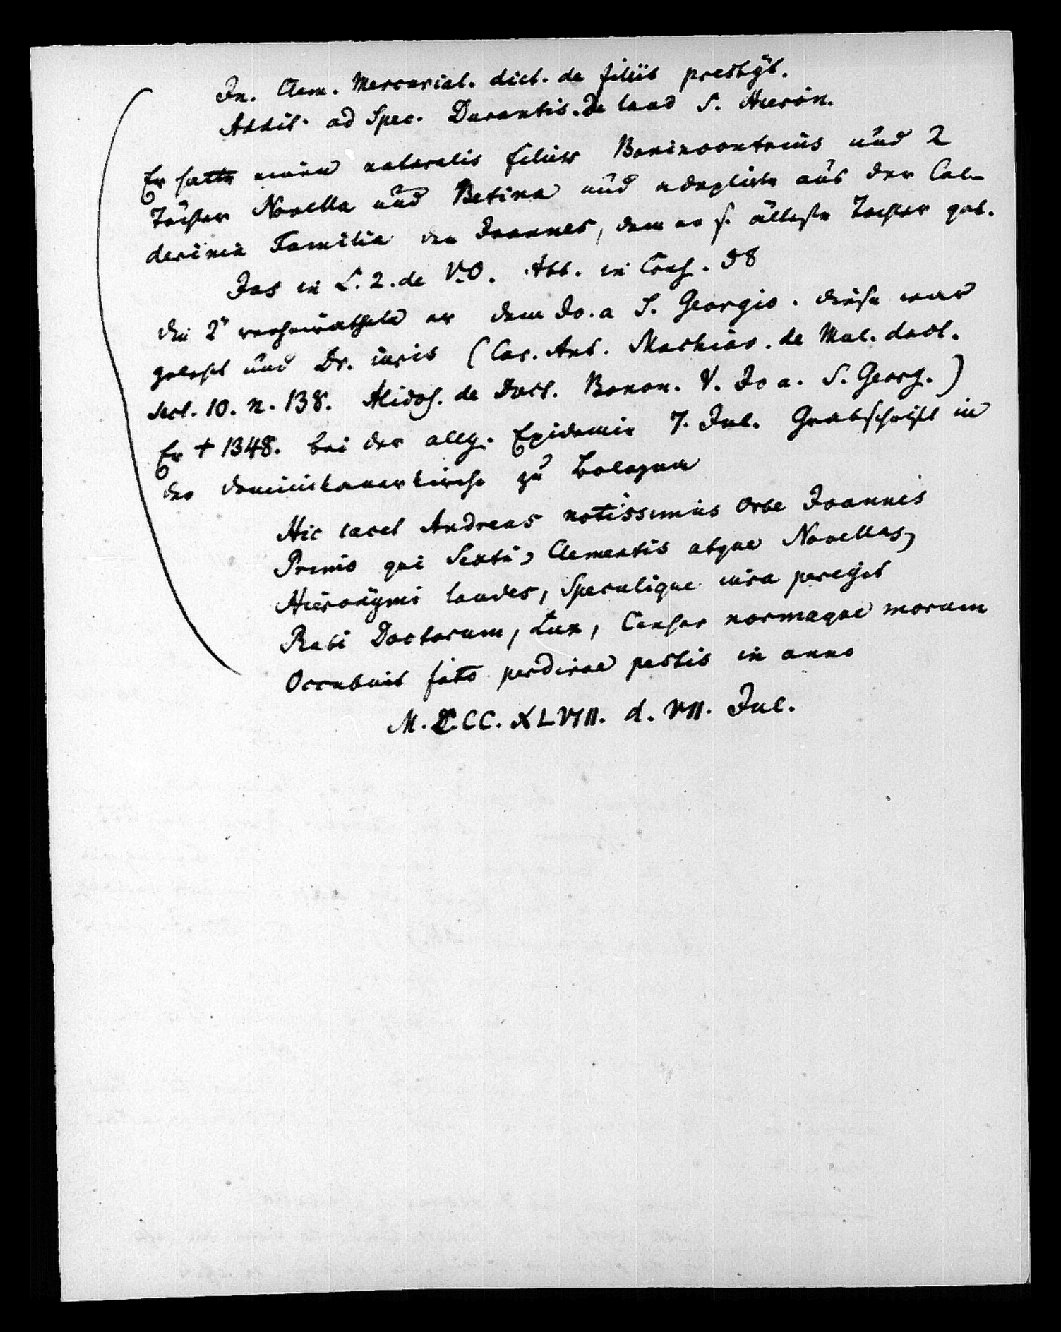 In. Clem. Mercurial. dict. de filiis presbÿt.
Addit. ad Spec. Durantis. De laud S. Hieron.
Er hatte einen naturalis filius Bonincontrius und 2
Töchter Novella und Betina und adoptirte aus der Cal-
derinia Familia den Joannes, dem er s. älteste Tochter gab.
Jas in L. 2. de V.O. Abb. in Cons. 58
die 2te verheirathete er dem Jo. a S. Georgio. diese war
gelehrt und Dr. iuris (Cas. Ant. Machiav. de Mul. doct.
sect. 10. n. 138. Alidos. de Doct. Bonon. V. Jo a. S. Georg.)
Er † 1348. bei der allg. Epidemie 7. Jul. Grabschrift in
der Dominikanerkirche zu Bologna
Hic iacet Andreas notissimus orbe Joannis
Primo qui Sextū, Clementis atque Novellas,
Hieronÿmi laudes, Speculique iura peregit
Rabi Doctorum, Lux, Censor normaque morum
Occubuit fato perdirae pestis in anno
M.CCC.XLVIII. d. VII. Jul.